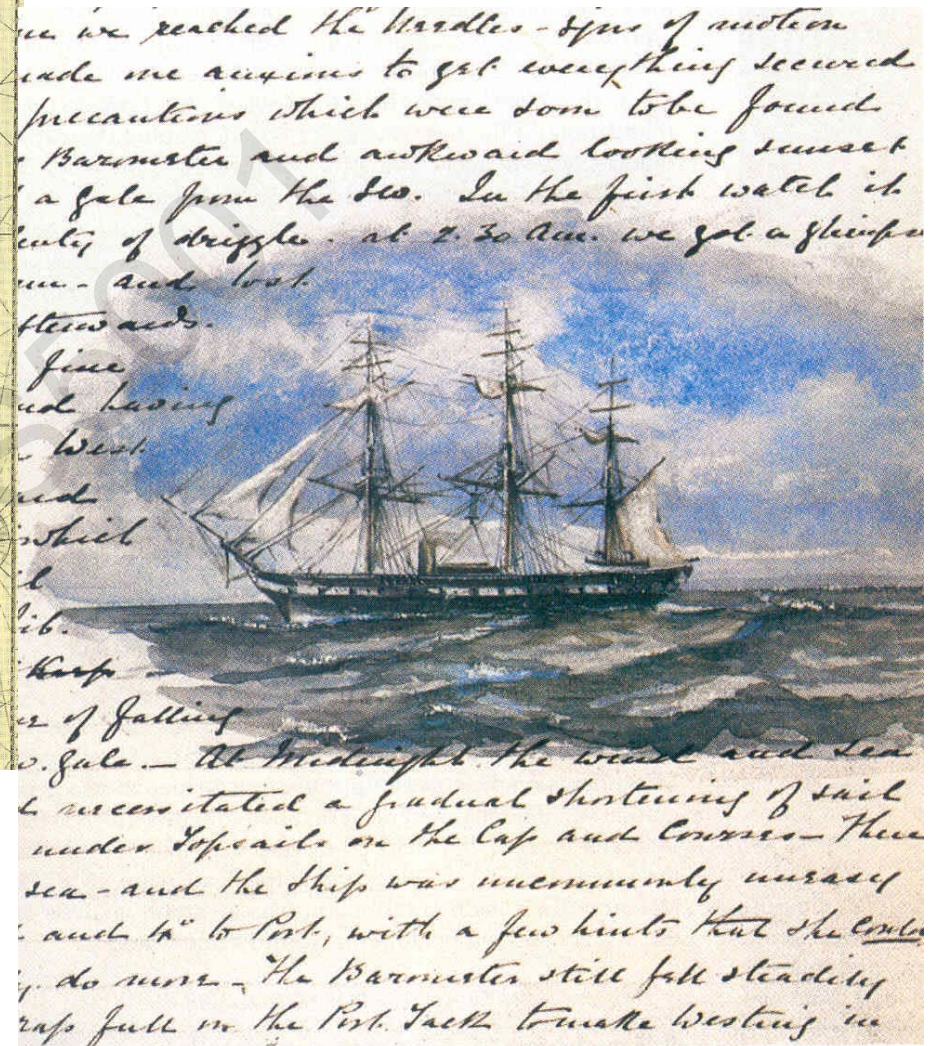 we reached the Needles - signs of motion
made me anxious to get everything secured
precautions which were soon to be found
Barometer and awkward looking sunset
a gale from the SW. In the first watch it
plenty of drizzle. at 2.30 am. we got a glimpse
and lost
fine
and having
West
which
Keep
of falling
gale. - At Midnight the wind and sea
necessitated a gradual shortening of sail
under Topsails on the Cap and Courses - There
sea - and the Ship was uncommonly uneasy
and to Port, with a few hints that she could
do more - The Barometer still fell steadily
full on the Port Tack to make Westing in